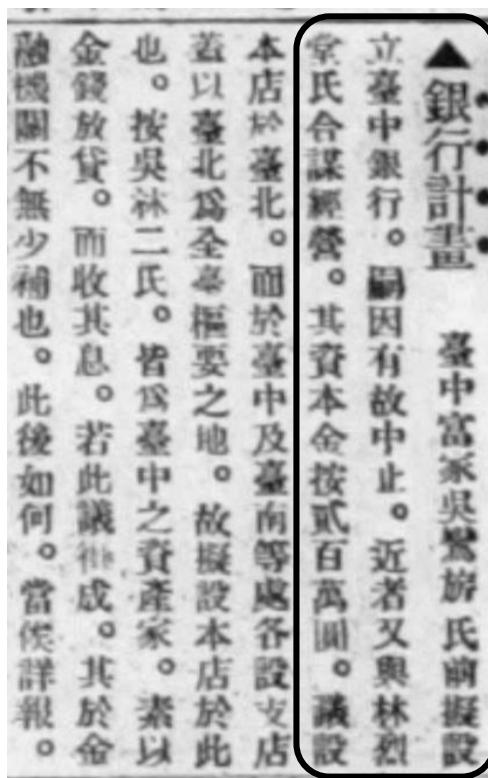 ▲銀行計畫 臺中富家吳鸞旂氏前擬設
立臺中銀行。嗣因有故中止。近者又與林烈
堂氏合謀經營。其資本金按貳百萬圓。議設
本店於臺北。而於臺中及臺南等處各設支店
蓋以臺北爲全臺樞要之地。故擬設本店於此
也。按吳林二氏。皆爲臺中之資產家。素以
金錢放貸。而收其息。若此議 成。其於金
融機關不無少補也。此後如何。當俟詳報。